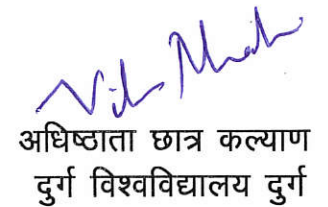 अधिष्ठाता छात्र कल्याण
दुर्ग विश्वविद्यालय दुर्ग